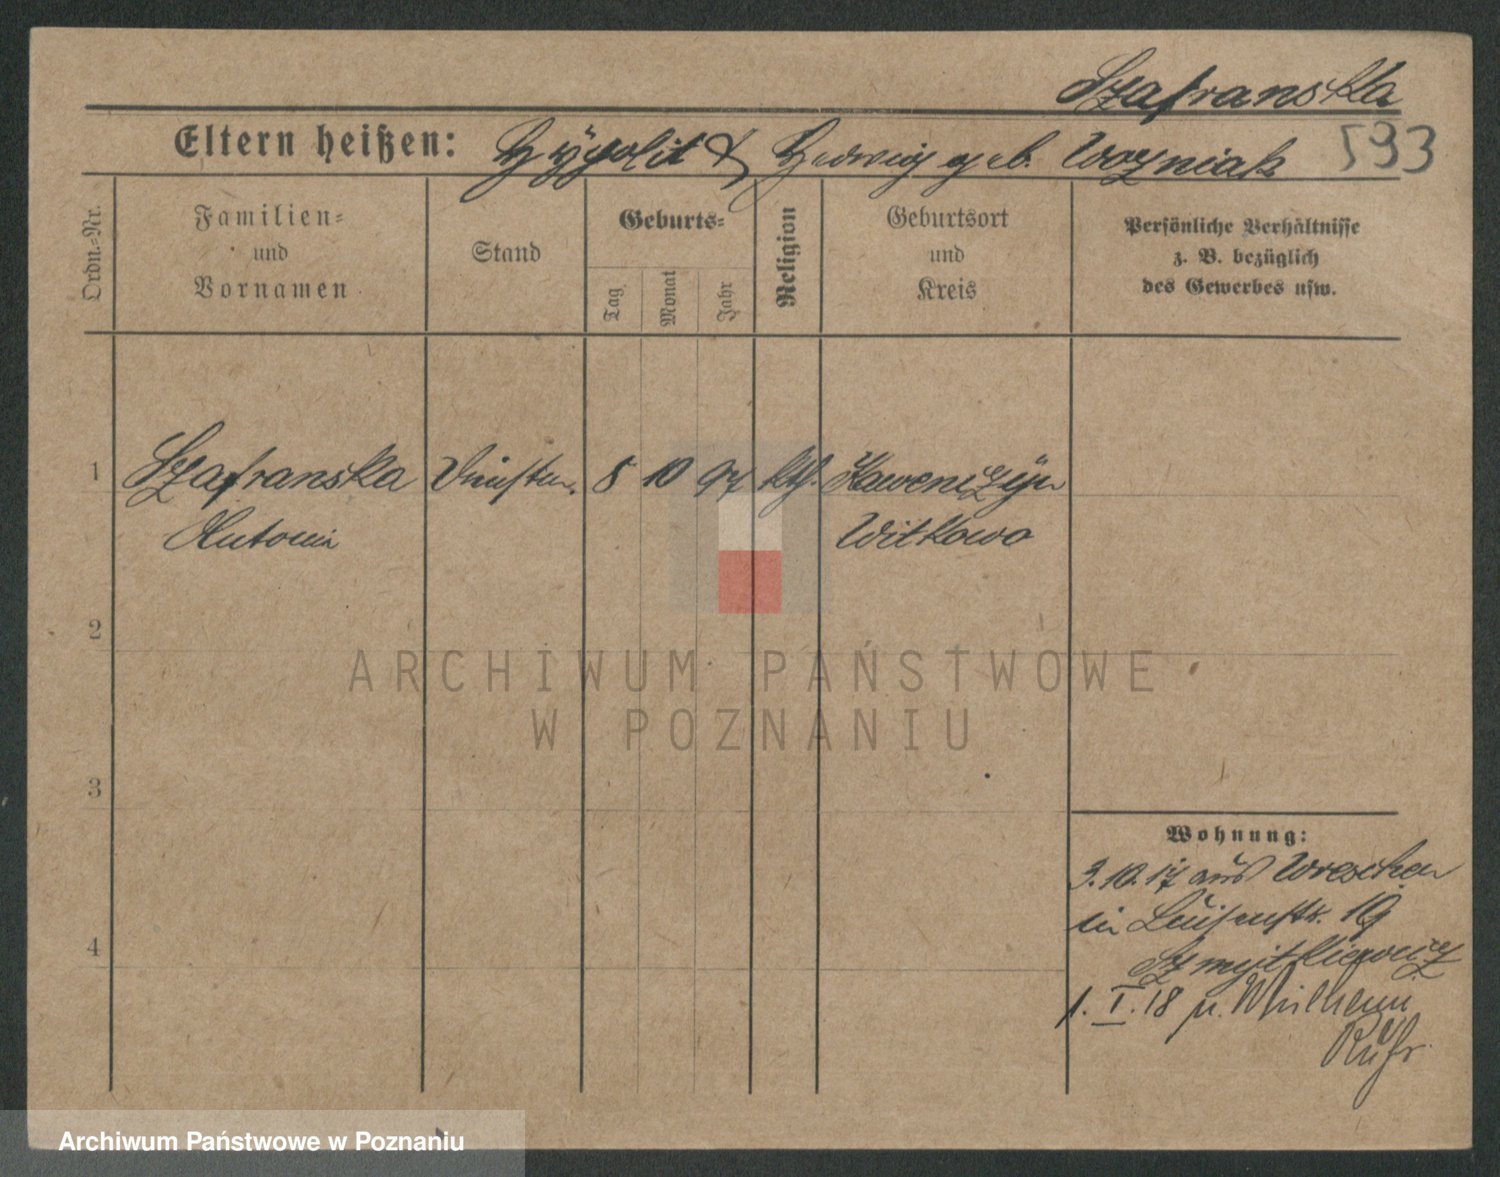 Szafranska
Eltern heißen: Hÿpolit & Hedwig geb. Wozniak 593
Ordn.=Nr.
Familien=
und
Vornamen
Stand
Geburts=
Tag
Monat
Jahr
Religion
Geburtsort
und
Kreis
Persönliche Verhältnisse
z. B. bezüglich
des Gewerbes usw.
1 Szafranska 8 10 97 kth.
Antonia Witkowo
2
3
4
Wohnung:
3.10.17 aus Wreschen
in Luisenstr. 19
1. I. 18 n.
Ruhr.
ARCHIWUM PAŃSTWOWE
W POZNANIU
Archiwum Państwowe w Poznaniu